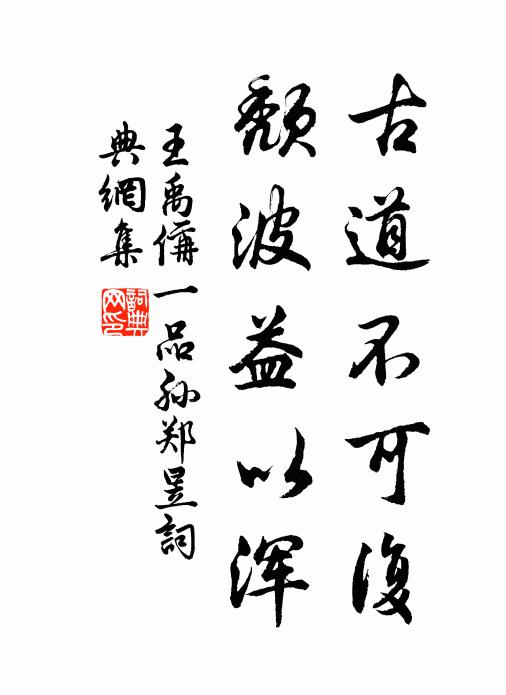 古道不可復
頽波益以渾
王禹偁一品孙郑昱詞
典網集
詞典
网印